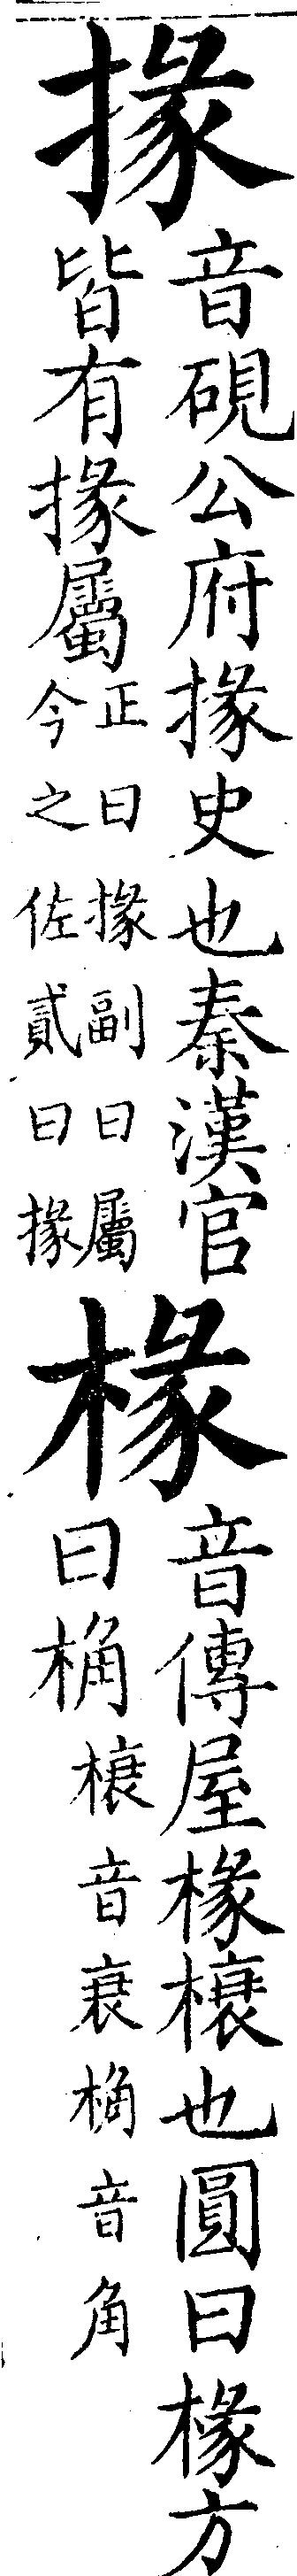 掾
音硯公府掾史也秦漢官
皆有掾屬
正曰掾副曰屬
今之佐貳曰掾
椽
音傳屋椽榱也圓曰椽方
曰桷
榱音衰桷音角